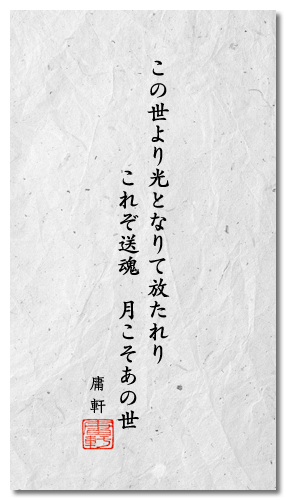 この世より光となりて放たれり
これぞ送魂　月こそあの世
庸軒